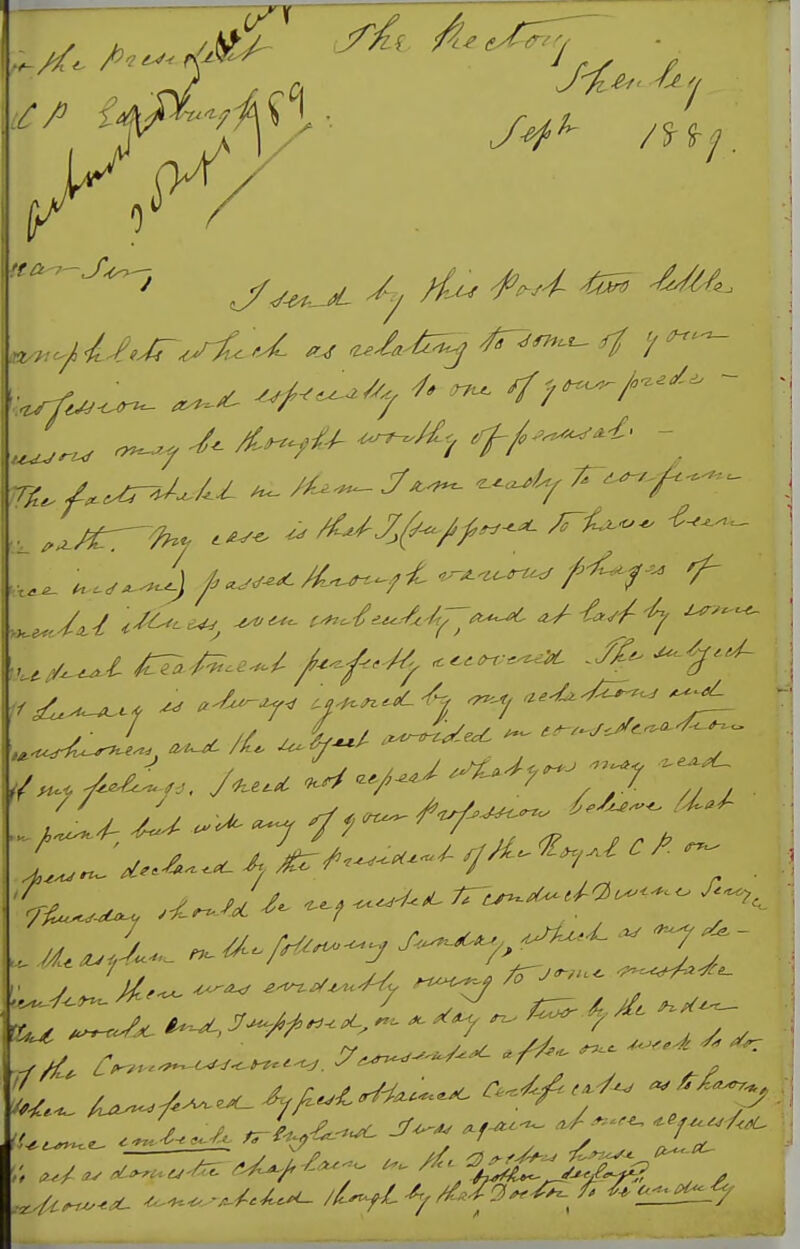 The Rectory
To the President
Shenley
R C P
Sept 1889.
Dear Sir,
I send by this Post two little
pamphlets which as relating to some of your
Profession and especially to one of your prede-
cessors may be thought worthy of perusal. -
The facts stated in them I am ready to confirm
on oath. My case is that I (supposed to have been
once insane) passed through various phases of
mental illness, even imbecility, and at last by some
medical treatment perfectly recovered. The subject
of lunacy is always ignored by my relations and
parishioners, and the subject avoided in consideration
of my feelings. I need not repeat what you may read
in print, but will any of your Profession believe that
a person declared by the President of the Royal C P. on
Thursday should be requested to conduct Divine Service
in the asylum on the following Sunday, which as my de-
tention there was evidently owing to some mistake
that would end, I supposed, in a day or two by the order
of the Commissioners. I consented after one week to do
when transferred by fresh obtained Certificates as to having
become imbecile to England I was again at once requested
to act as domestic chaplain in the Doctors house and
allowed unwatched though by that Doctor to be unduly